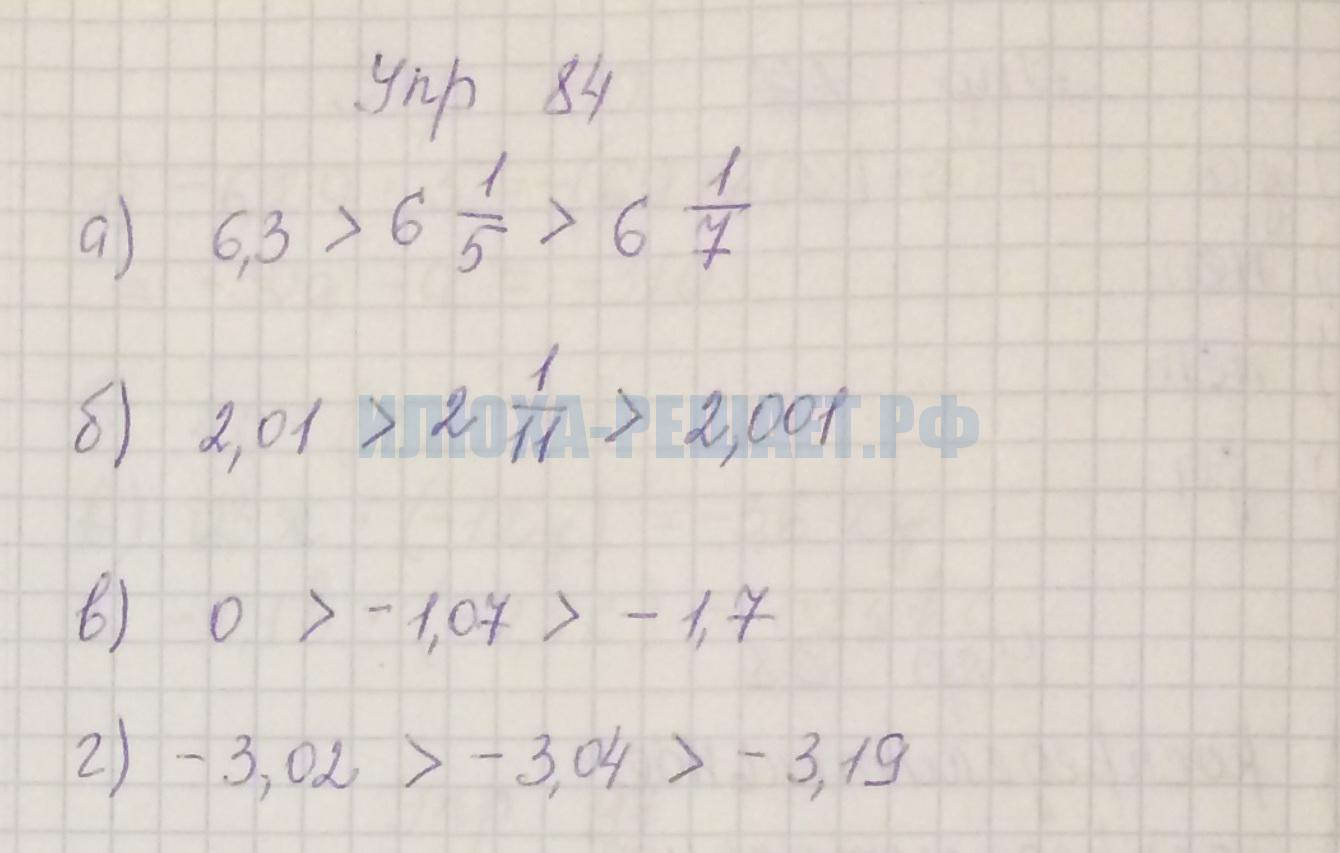 Упр 84
а) 6,3 > 6 1/5 > 6 1/7
б) 2,01 > 2 1/11 > 2,001
ИЛЮХА-РЕШАЕТ.РФ
в) 0 > -1,07 > -1,7
г) -3,02 > -3,04 > -3,19